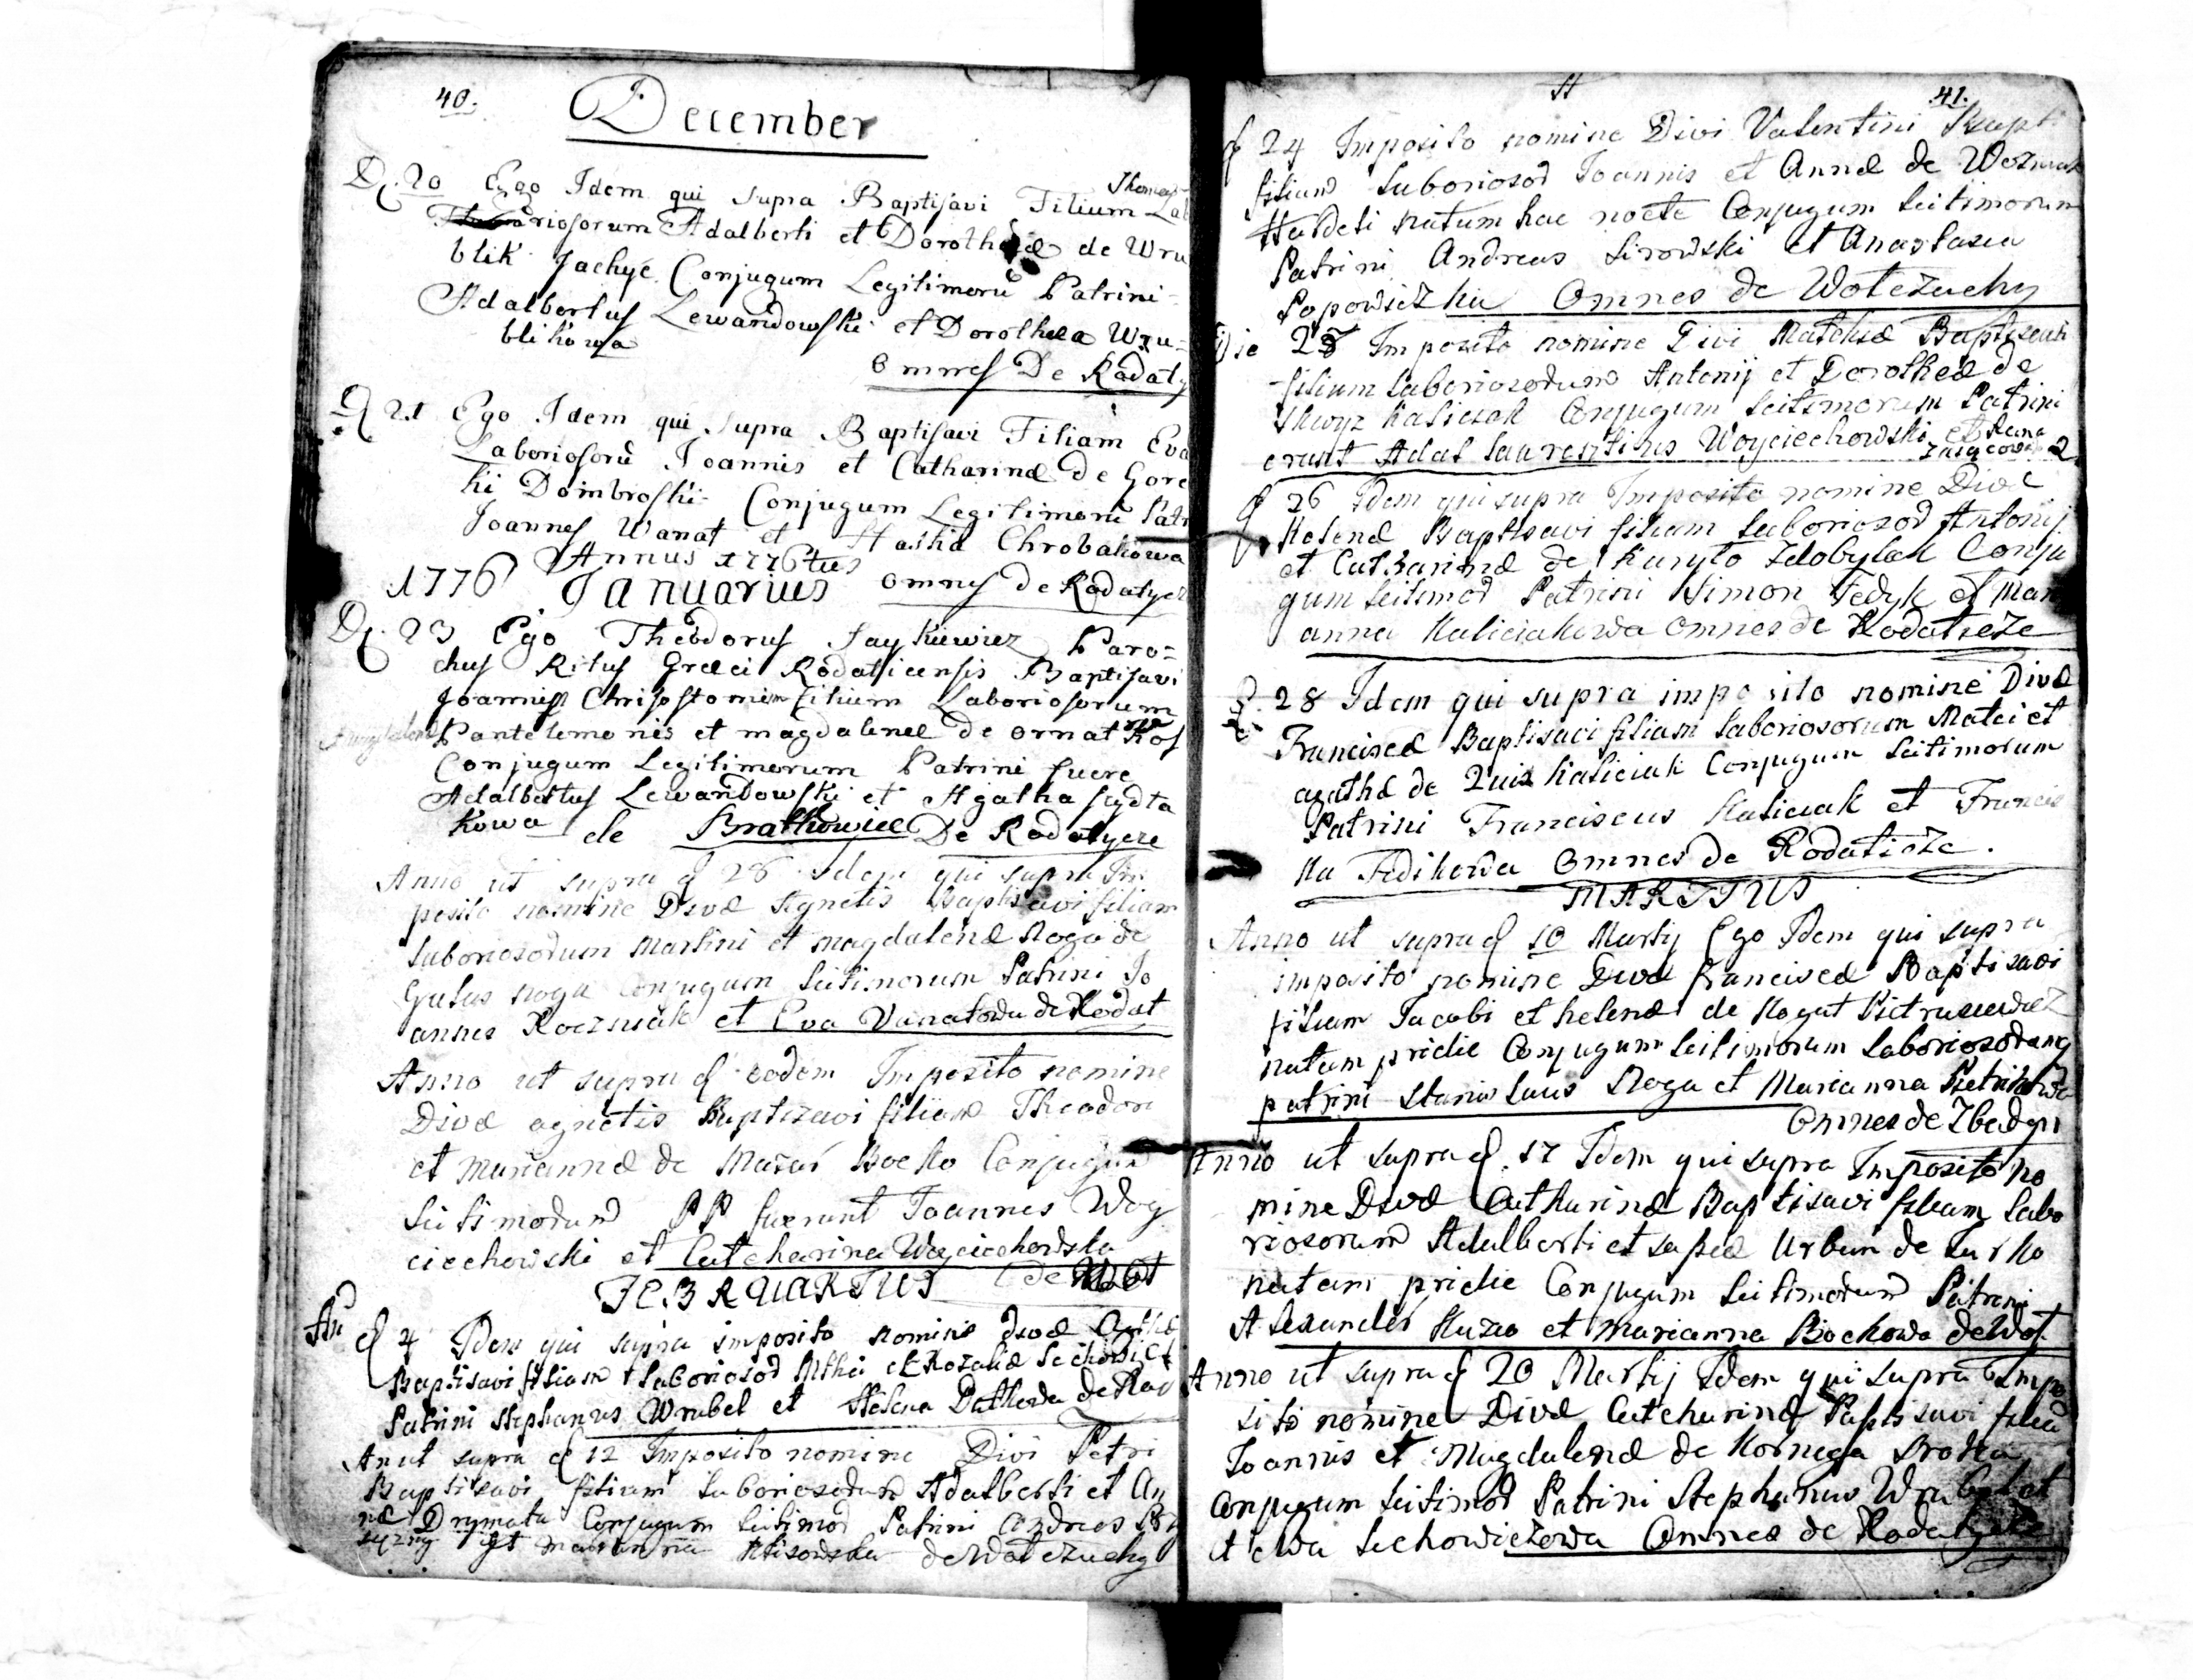 40.
December
D. 20 Ego Idem qui supra Baptisavi Filium Thomas Lab
riosorum Adalberti et Dorotheæ de Wru
blik Jachyć Conjugum Legitimorū Patrini
Adalbertus Lewandowski et Dorothea Wru=
blikowa
Omnes De Rodaty
D. 21 Ego Idem qui supra Baptisavi Filiam Eva
Laboriosorū Joannis et Catharinæ de Gore
ki Dombroski Conjugum Legitimorū Patr
Joannes Wanat et Hasha Chrobakowa
Annus 1776tus
1776 Januarius omnes de Rodatycz
D. 23 Ego Theodorus Jaykiewicz Paro=
chus Ritus Græci Rodaticensis Baptisavi
Joannem Chrisostomum filium Laboriosorum
Pantelemonis et magdalenæ de ornat Kos
Conjugum Legitimorum Patrini fuere
Adalbertus Lewandowski et Agatha
kowa de Bratkowice De Rodatycze
Anno ut supra d 26 Idem qui supra Im
posito nomine Divæ Agnetis Baptisavi filiam
laboriosorum Martini et magdalenæ Noga de
noga Conjugum leitimorum Patrini Jo
annes Koczniak et Eva Vanatowa de Rodat
Anno ut supra d eodem Imposito nomine
Divæ agnetis Baptizavi filiam Theodori
et Mariannæ de Mazur Bocko Conjugum
leitimorum PP fuerunt Joannes Woy
ciechowski et Catcharina Woyciechowska
FEBRUARIUS de Wot
An d 4 Idem qui supra imposito nomine divæ
Baptisavi filiam laboriosor et Rozaliæ
Patrini Stephanus Wrubel et Helena de Rod
An ut supra d 12 Imposito nomine Divi Petri
Baptisavi filium laboriosorum Adalberti et An
næ Drymata Conjugum leitimor Patrini Andreas
et Marianna de Wołczuchy
41.
d 24 Imposito nomine Divi Valentini Bapt
filium laboriosor Joannis et Annæ de Wozniak
natum hac nocte Conjugum leitimorum
Patrini Andreas Sirowski et Anastasia
Popowiczka Omnes de Wołczuchy
Die 25 Imposito nomine Divi Mathiæ Baptisavi
filium laboriosorum Antonij et Dorotheæ de
Kaliciak Conjugum leitimorum Patrini
erunt Laurentius Woyciechowski et
d 26 Idem qui supra Imposito nomine Divæ
Helenæ Baptisavi filiam laboriosor Antonij
et Catharinæ de Kuryło Zdobylak Conju
gum leitimor Patrini Simon Fedyk et Mari
anna Kaliciakowa omnes de Rodatieze
d. 28 Idem qui supra imposito nomine Divæ
Franciscæ Baptisavi filiam laboriosorum Matei et
agathæ de Kaliciak Conjugum leitimorum
Patrini Franciscus Kaliciak et Francis
ka Fedikowa Omnes de Rodatieze.
MARTIUS
Anno ut supra d 10 Martij Ego Idem qui supra
imposito nomine Divæ Franciscæ Baptisavi
filiam Jacobi et helenæ de Kogut
natam pridie Conjugum leitimorum laboriosorum
patrini Stanislaus Noga et Marianna
Omnes de Zbadyn
Anno ut supra d. 17 Idem qui supra Imposito no
mine Divæ Catharinæ Baptisavi filiam labo
riosorum Adalberti et Urban de
natam pridie Conjugum leitimorum Patrini
Alexander et Marianna Bockowa de Wot
Anno ut supra d 20 Martij Idem qui supra Impo
sito nomine Divæ Catcharinæ Baptisavi filia
Joannis et Magdalenæ de Kornega Sroka
Conjugum leitimor Patrini Stephanus Wrubel et
et ewa Lechowiczowa Omnes de Rodatycze